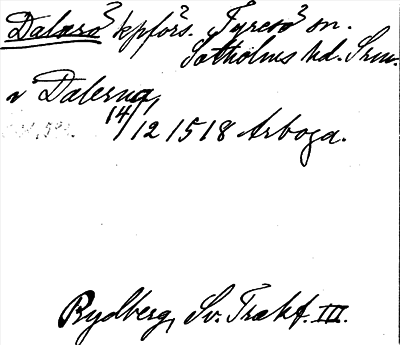 Dalarö³ kpförs. Tyresö³ sn.
Sotholms hd. Srm.
v Dalerna,
14/12 1518 Arboga.
Rydberg, Sv. Trakt. III.